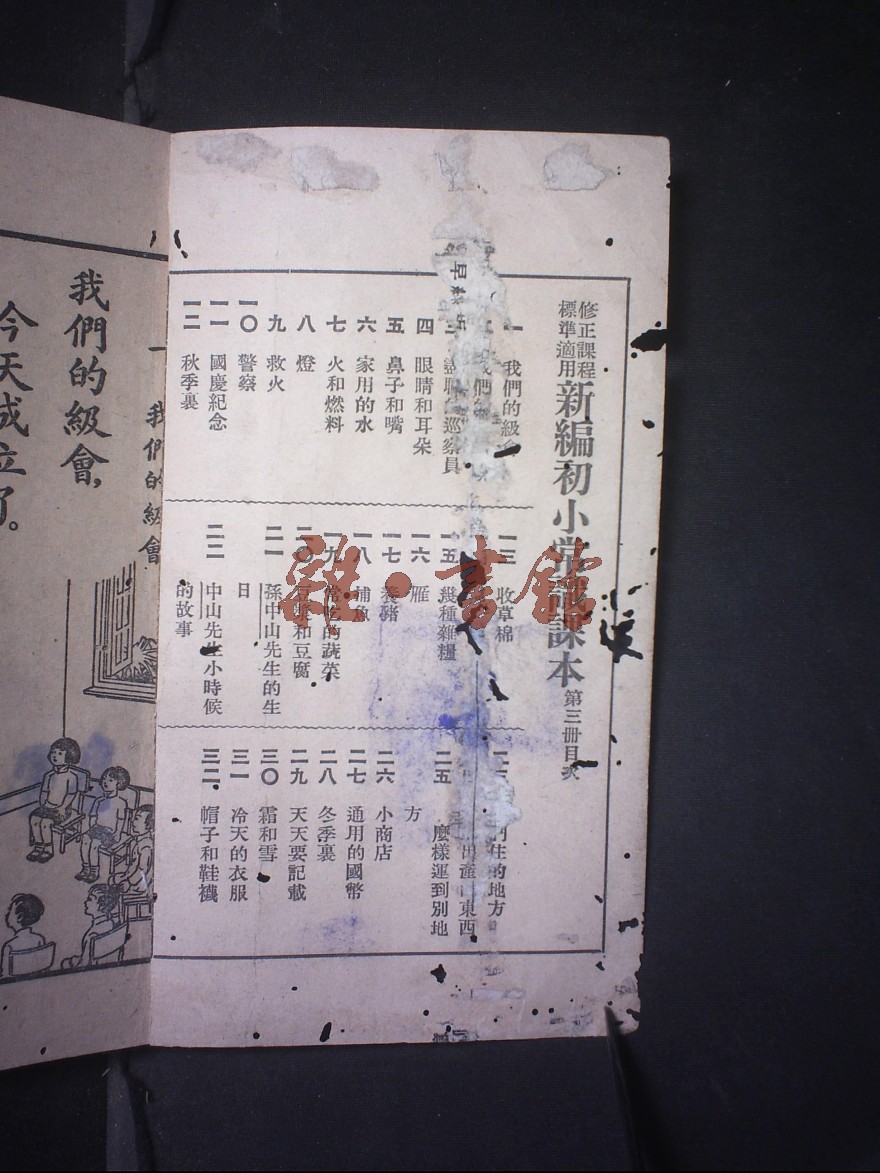 修正課程
標準適用
新編初小常識課本 第三冊目次
一 我們的級會
二 我們
三 巡察員
四 眼睛和耳朵
五 鼻子和嘴
六 家用的水
七 火和燃料
八 燈
九 救火
一〇 警察
一一 國慶紀念
一二 秋季裏
一三 收草棉
一五 幾種雜糧
一六 雁
一七 養豬
一八 捕魚
一九 常吃的蔬菜
二〇 豆漿和豆腐
二一 孫中山先生的生
日
二二 中山先生小時候
的故事
住的地方
出產 東西
二五 麼樣運到別地
方
二六 小商店
二七 通用的國幣
二八 冬季裏
二九 天天要記載
三〇 霜和雪
三一 冷天的衣服
三二 帽子和鞋襪
一 我們的級會
我們的級會,
今天成立了。
雜·書館